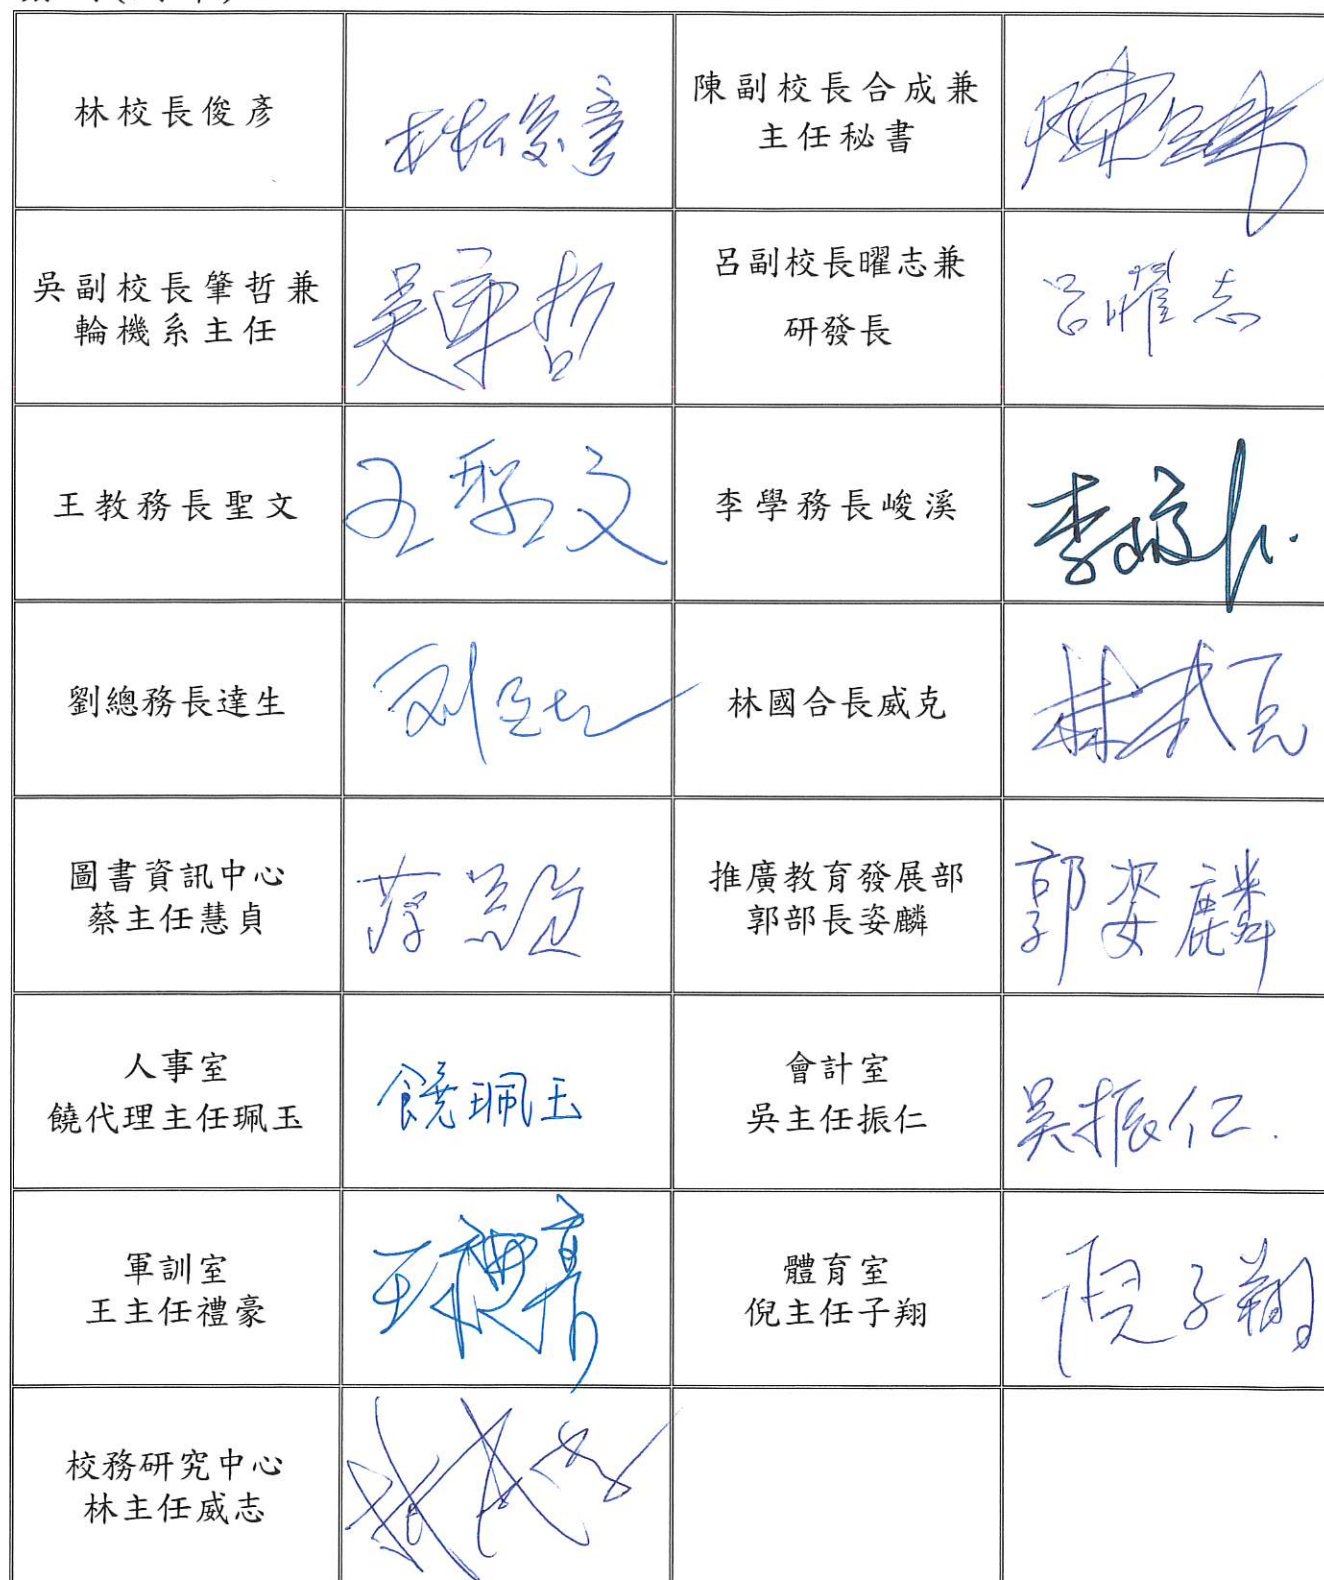 林校長俊彥
林俊彥
陳副校長合成兼
主任秘書
陳合成
吳副校長肇哲兼
輪機系主任
吳肇哲
呂副校長曜志兼
研發長
呂曜志
王教務長聖文
王聖文
李學務長峻溪
李峻
劉總務長達生
刘达生
林國合長威克
林威克
圖書資訊中心
蔡主任慧貞
蔡慧貞
推廣教育發展部
郭部長姿麟
郭姿麟
人事室
饒代理主任珮玉
饒珮玉
會計室
吳主任振仁
吳振仁.
軍訓室
王主任禮豪
王禮豪
體育室
倪主任子翔
倪子翔
校務研究中心
林主任威志
林威志